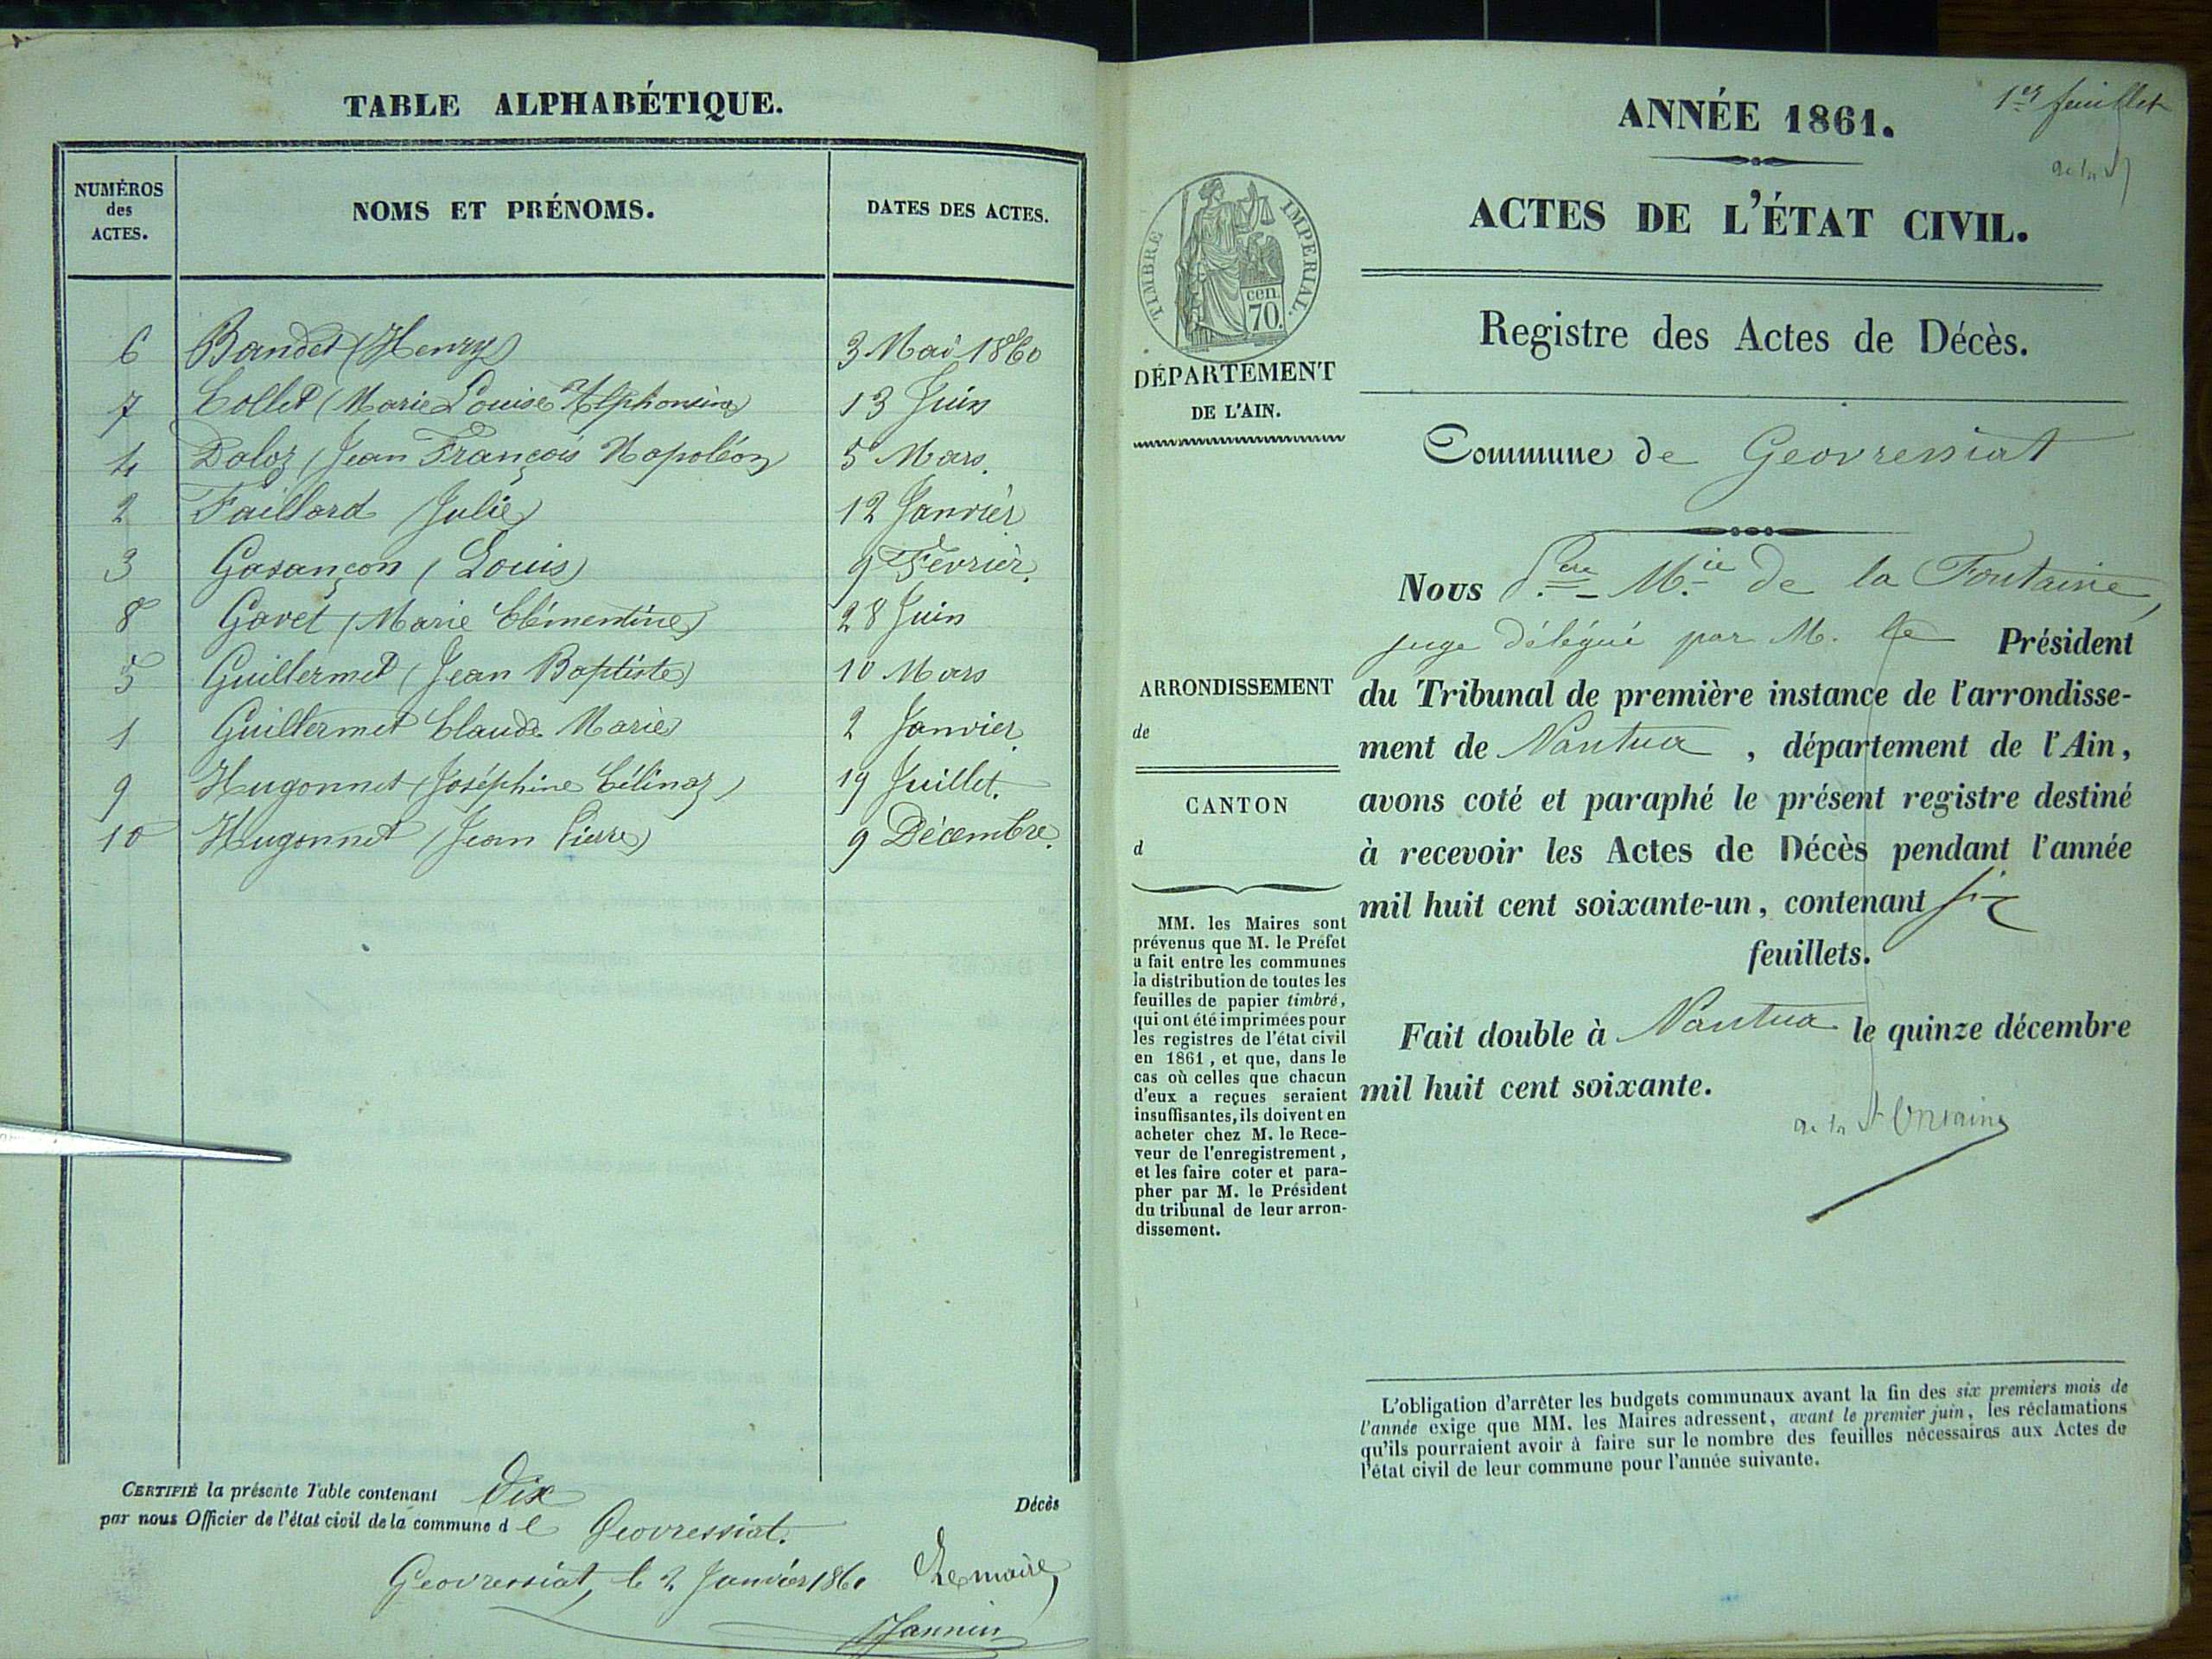 TABLE ALPHABÉTIQUE.
NUMÉROS des ACTES. NOMS ET PRÉNOMS. DATES DES ACTES.
6 Bandet (Henry) 3 Mai 1860
7 Collet (Marie Louise Alphonsine) 13 Juin
4 Daloz (Jean François Napoléon) 5 Mars.
2 Faillard (Julie) 12 Janvier
3 Gasançon (Louis) 9 Février.
8 Gavet (Marie Clémentine) 28 Juin
5 Guillermet (Jean Baptiste) 10 Mars
1 Guillermet Claude Marie 2 Janvier.
9 Hugonnet (Joséphine Célina) 19 Juillet.
10 Hugonnet (Jean Pierre) 9 Décembre.
CERTIFIÉ la présente Table contenant Dix Décès
par nous Officier de l'état civil de la commune de Geovressiat.
Geovressiat, le 2 Janvier 1860 Le maire,
1er feuillet
ANNÉE 1861.
ACTES DE L'ÉTAT CIVIL.
TIMBRE IMPERIAL.
cen.
70.
Registre des Actes de Décès.
DÉPARTEMENT
DE L'AIN.
Commune de Geovressiat
Nous Mie de la Fontaine,
juge délégué par M. le Président
ARRONDISSEMENT
de
CANTON
d
du Tribunal de première instance de l'arrondisse-
ment de Nantua, département de l'Ain,
avons coté et paraphé le présent registre destiné
à recevoir les Actes de Décès pendant l'année
mil huit cent soixante-un, contenant six
feuillets.
Fait double à Nantua le quinze décembre
mil huit cent soixante.
de la Fontaine
MM. les Maires sont
prévenus que M. le Préfet
a fait entre les communes
la distribution de toutes les
feuilles de papier timbré,
qui ont été imprimées pour
les registres de l'état civil
en 1861, et que, dans le
cas où celles que chacun
d'eux a reçues seraient
insuffisantes, ils doivent en
acheter chez M. le Rece-
veur de l'enregistrement,
et les faire coter et para-
pher par M. le Président
du tribunal de leur arron-
dissement.
L'obligation d'arrêter les budgets communaux avant la fin des six premiers mois de
l'année exige que MM. les Maires adressent, avant le premier juin, les réclamations
qu'ils pourraient avoir à faire sur le nombre des feuilles nécessaires aux Actes de
l'état civil de leur commune pour l'année suivante.